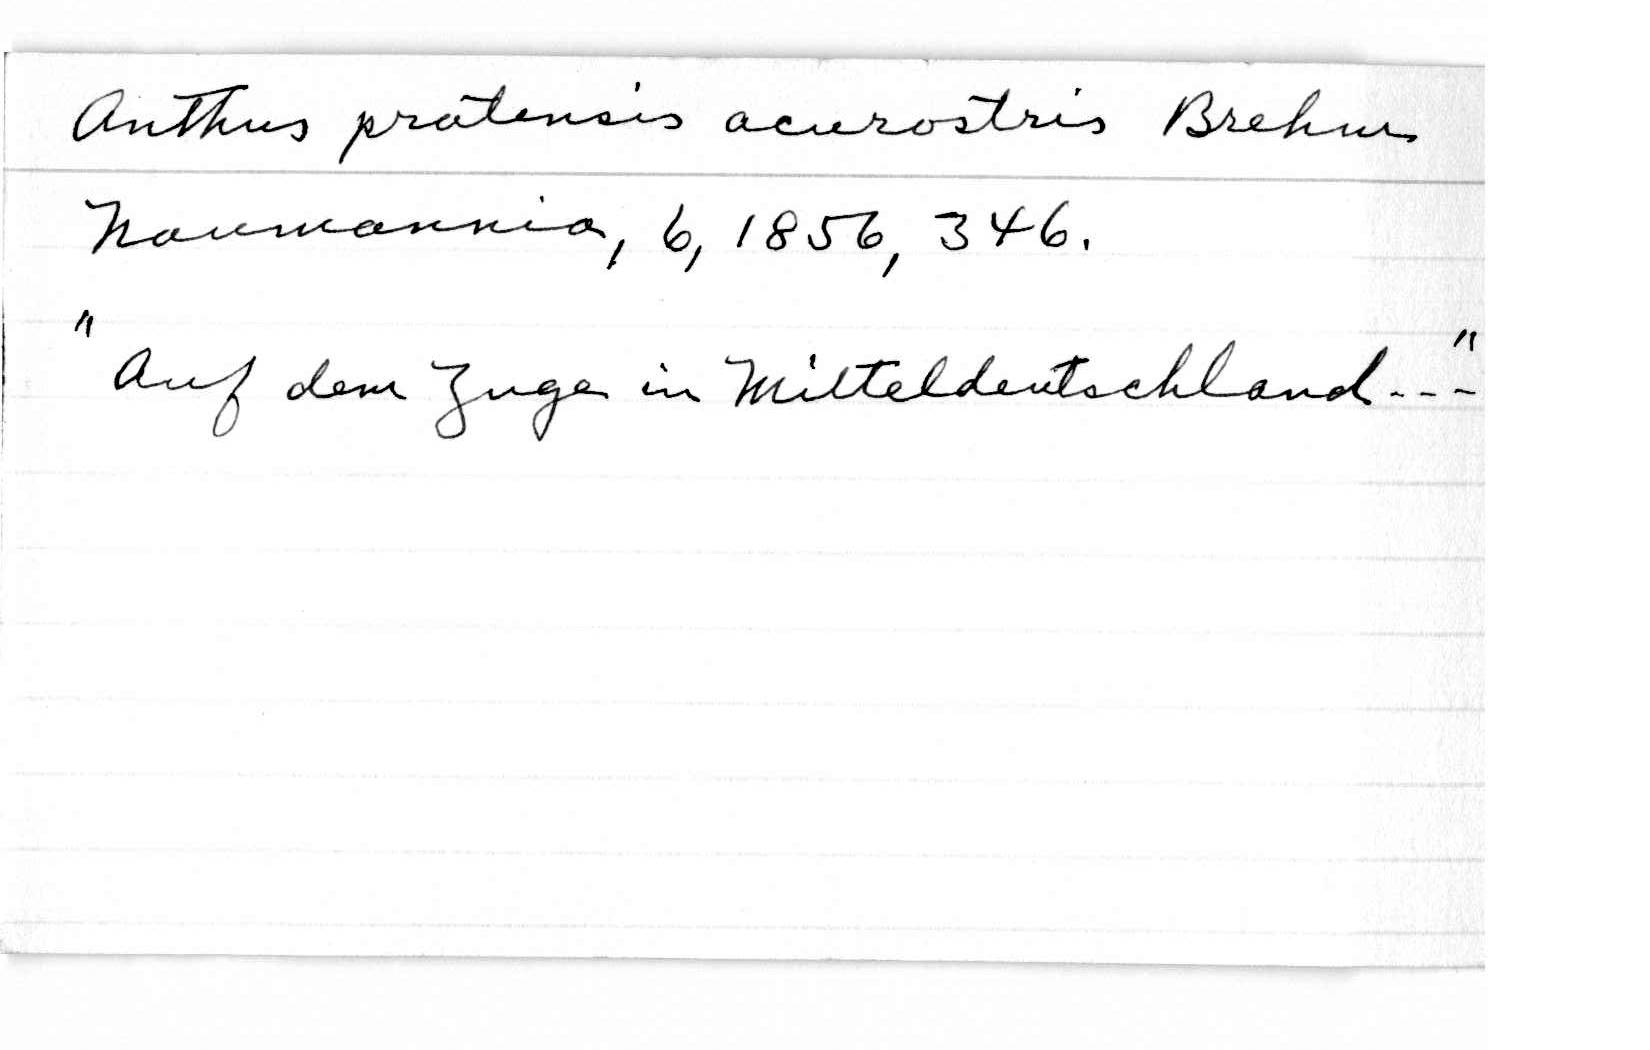 Anthus pratensis acurostris Brehm
Naumannia, 6, 1856, 346.
"Auf dem Zuge in Mitteldeutschland---"